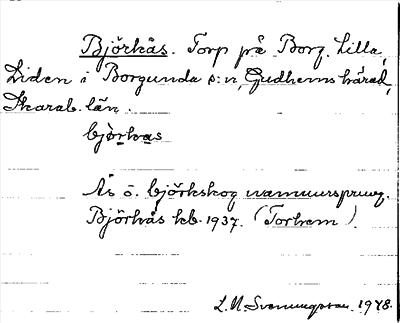 Björkås. Torp på Borg. Lilla
Liden i Borgunda s:n, Gudhems härad,
Skarab. län.
bjo̱rkas
Ås o. björkskog namnursprung.
Björkås kb. 1937. (Torhem).
L.N. Svenungsson. 1978.